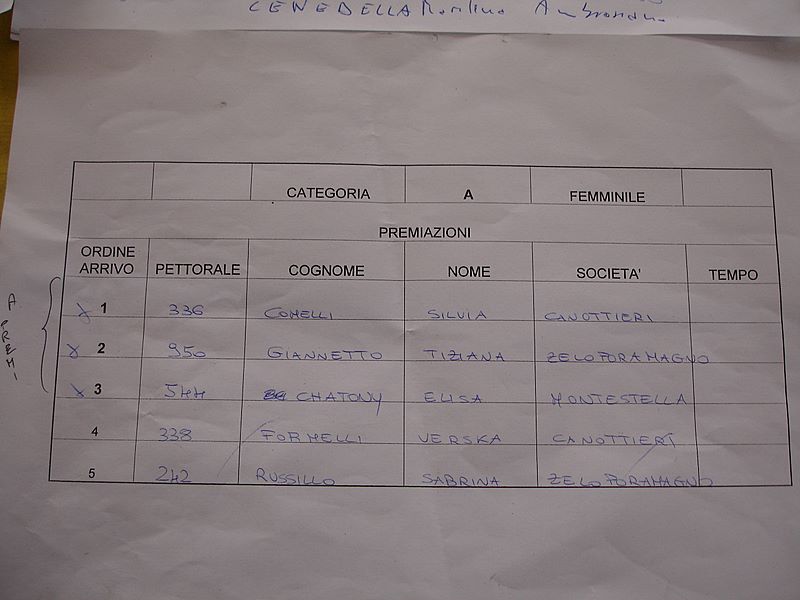 CENEDELLA
CATEGORIA A FEMMINILE
PREMIAZIONI
ORDINE ARRIVO PETTORALE COGNOME NOME SOCIETA' TEMPO
1 336 COMELLI SILVIA CANOTTIERI
2 950 GIANNETTO TIZIANA ZELOFORAMAGNO
3 544 CHATONY ELISA MONTESTELLA
4 338 FORMELLI VERSKA CANOTTIERI
5 242 RUSSILLO SABRINA ZELOFORAMAGNO
A PREMI